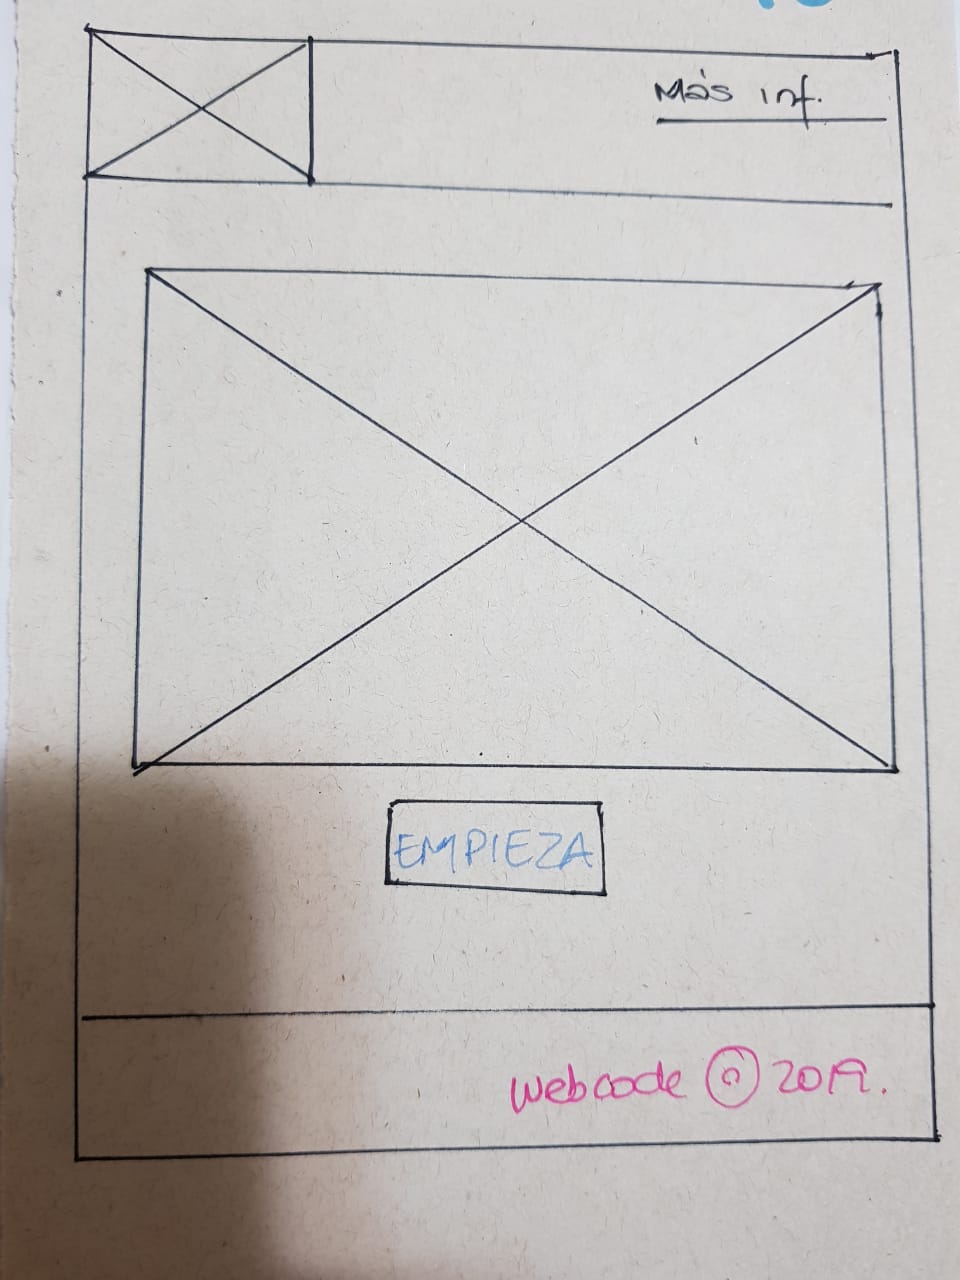 Más inf.
EMPIEZA
webcode © 2019.